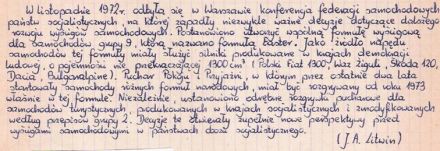 W listopadzie 1972r. odbyła się w Warszawie konferencja federacji samochodowych
państw socjalistycznych, na której zapadły niezwykle ważne decyzje dotyczące dalszego
rozwoju wyścigów samochodowych. Postanowiono utworzyć wspólną formułę wyścigową
dla samochodów grupy 9, którą nazwano formułą Easter. Jako źródło napędu
samochodów tej formuły miały służyć silniki produkowane w krajach demokracji
ludowej, o pojemności nie przekraczającej 1300 cm³ (Polski Fiat 1300, Waz Żiguli, Skoda 120,
Dacia, Bulgaralpine). Puchar Pokoju i Przyjaźni, w którym przez ostatnie dwa lata
startowały samochody różnych formuł narodowych, miał być rozgrywany od roku 1973
właśnie w tej formule. Niezależnie, ustanowiono odrębne rozgrywki pucharowe dla
samochodów turystycznych produkowanych w krajach socjalistycznych i zmodyfikowanych
według przepisów grupy 2. Decyzje te otwierały zupełnie nowe perspektywy przed
wyścigami samochodowymi w państwach dość socjalistycznego.
(J.A. Litwin)